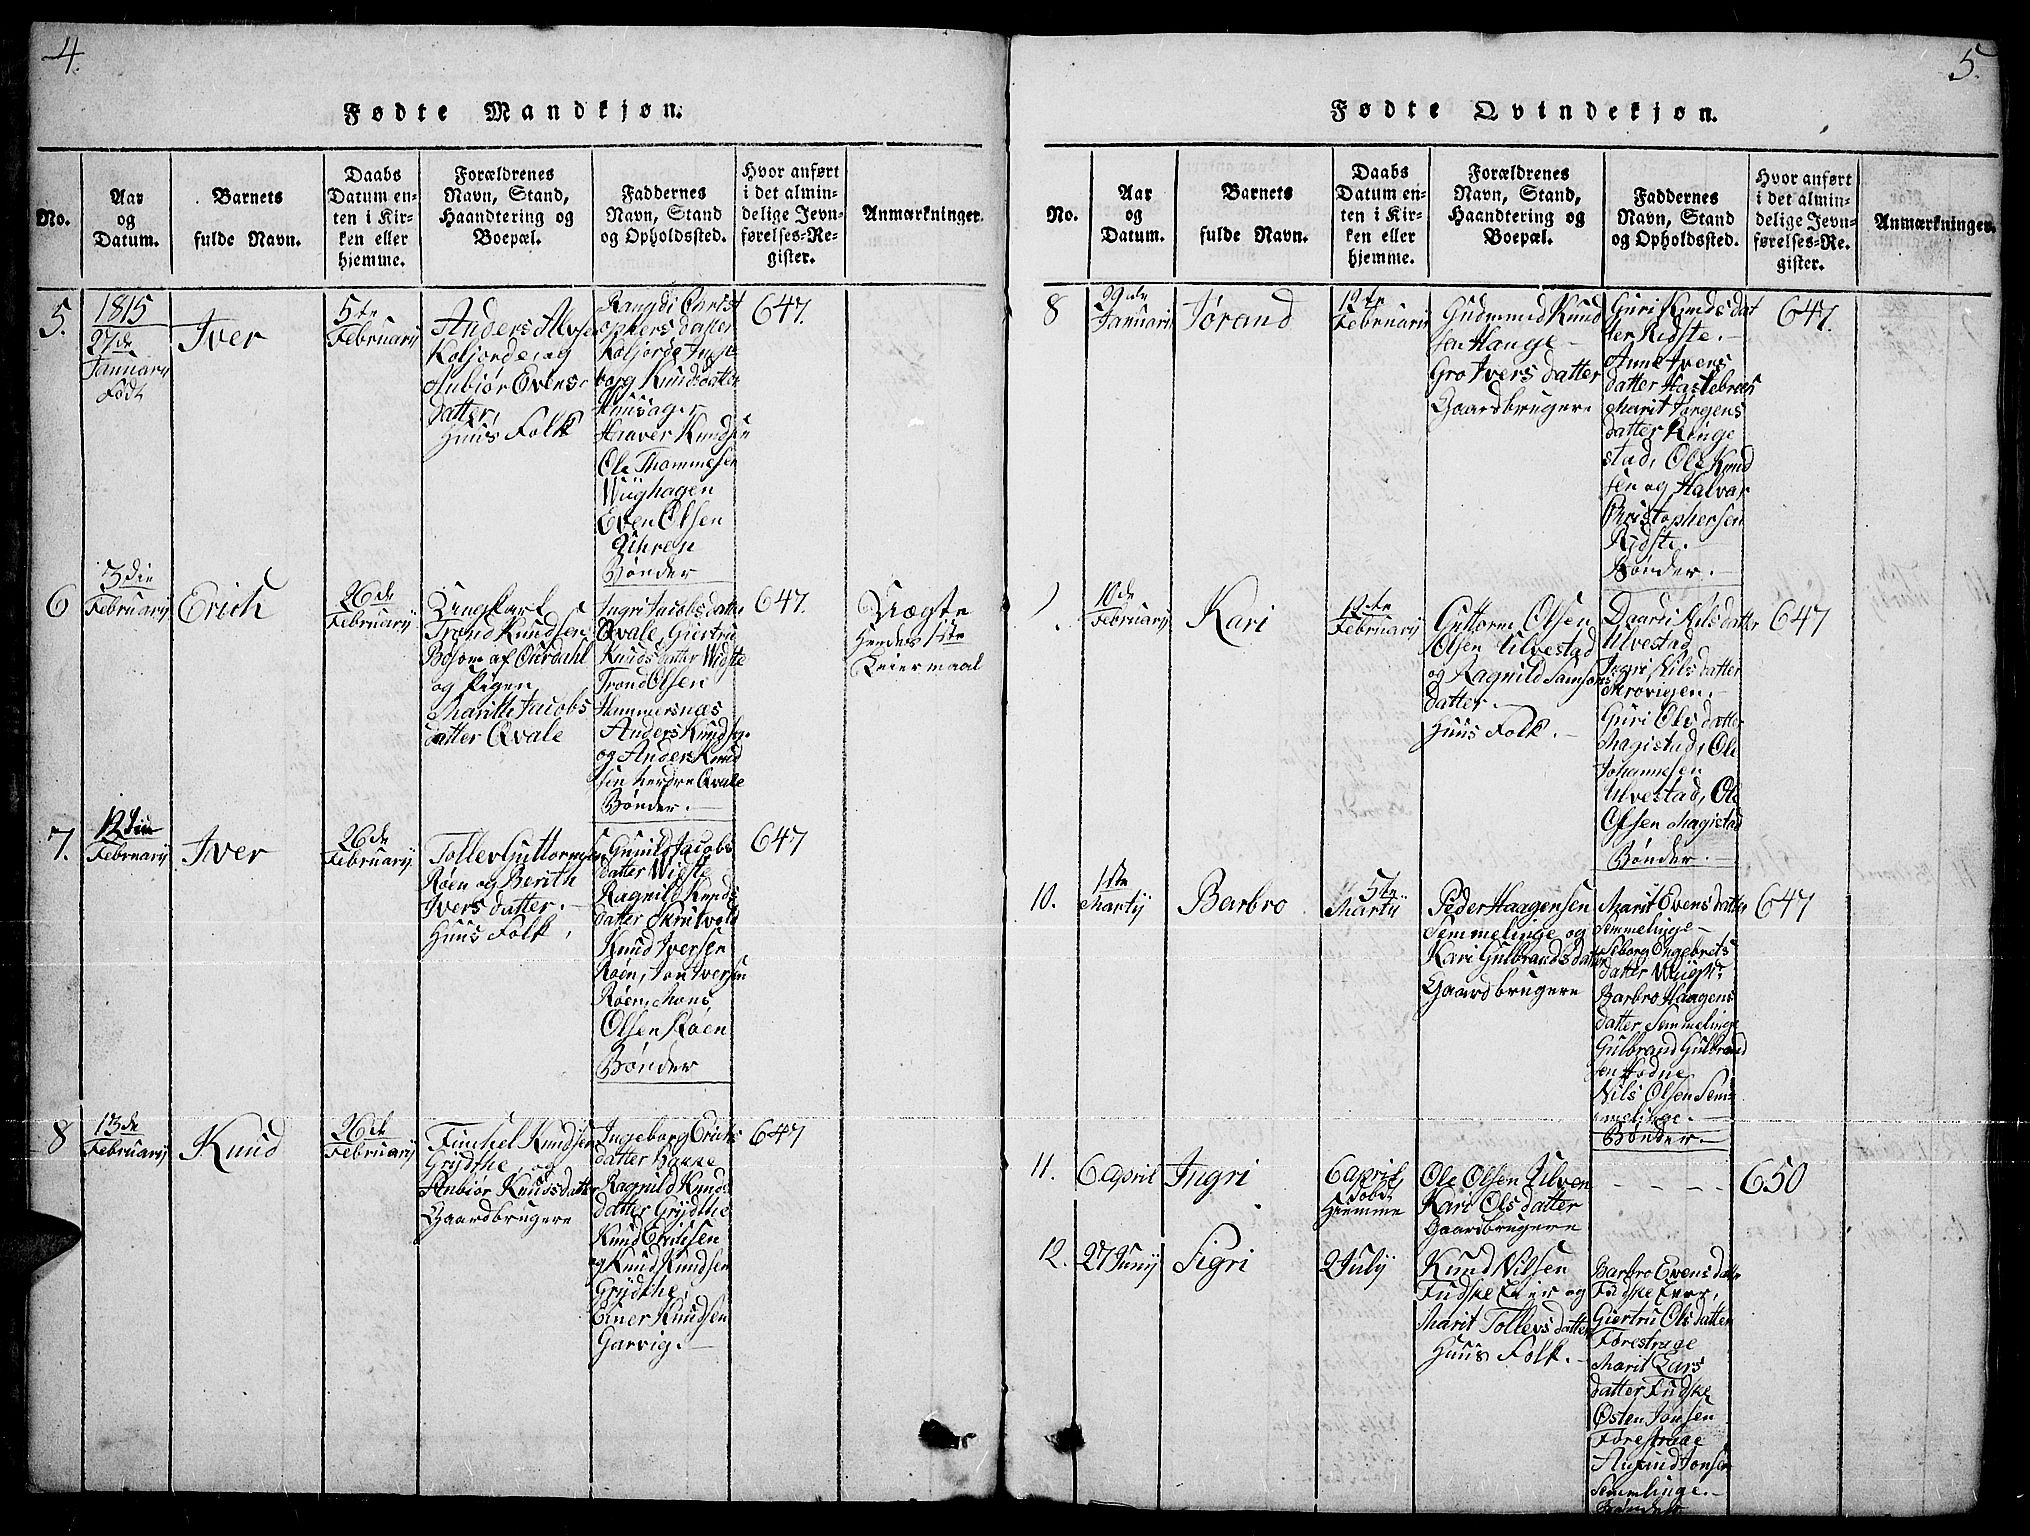 4.
Fødte Mandkjøn.
No.
Aar
og
Datum.
Barnets
fulde Navn.
Daabs
Datum en-
ten i Kir-
ken eller
hjemme.
Forældrenes
Navn, Stand,
Haandtering og
Boepæl.
Faddernes
Navn, Stand
og Opholdssted.
Hvor anført
i det almin-
delige Jevn-
førelses-Re-
gister.
Anmærkninger.
5.
1815
27de
Januarij
Født
Iver
5te
Februarij
Anders
Koljorde, og
Anbiør Evens
datter,
Huus Folk
Rangdi Christ
ophers datter
Koljorde Inge
borg Knudsdatter
Huusager
Haaver Knudsen
Ole Thommesen
Wiighagen
Even Olsen
Bønder
647.
6
3die
Februarij
Erich
26de
Februarij
Ungkarl
Trond Knudsen
af Ourdahl
og Pigen
Marithe Jacobs
datter Qvale
Ingri Jacobs datter
Qvale, Giertru
Knuds datter Widste
Trond Olsen
Hammersnas
Anders Knudsen
og Anders Knud
sen nerdre Qvale
Bønder.
647.
Uægte
Hendes 1ste
Leiermaal
7.
12te
Februarij
Iver
26de
Februarij
Tollev Guttormsen
Røen og Berith
Ivers datter.
Huus Folk,
Gunild Jacobs
datter Wigste
Ragnild Knuds
datter Skrutvold
Knud Iversen
Røen, Jon Iversen
Røen, Mons
Olsen Røen
Bønder
647
8
13de
Februarij
Knud
26de
Februarij
Knudsen
Grydthe, og
Anbiør Knudsdatter
Gaardbrugere
Ingeborg Erichs
datter
Ragnild Knuds
datter Grydthe
Knud Erichsen
og Knud Knudsen
Grydthe,
Einer Knudsen
Garvig.
647
5.
Fødte Qvindekjøn.
No.
Aar
og
Datum.
Barnets
fulde Navn.
Daabs
Datum en-
ten i Kir-
ken eller
hjemme.
Forældrenes
Navn, Stand,
Haandtering og
Boepæl.
Faddernes
Navn, Stand
og Opholdssted.
Hvor anført
i det almin-
delige Jevn-
førelses-Re-
gister.
Anmærkninger.
8
29de
Januarii
Jørand
12te
Februarii
Gudmund Knud
sen Hauge
Gro Ivers datter
Gaardbrugere
Guri Knuds dat
ter Ridste.
Anne Ivers
datter
Marit Jørgens
datter Ringe
stad, Ole Knud
sen og Halvar
Christophersen
Ridste.
Bønder.
647.
10de
Februarij
Kari
12te
Februarij
Guttorm Olsen
Olsen Ulvestad
og Ragnild Samsons
datter.
Huus Folk.
Nilsdatter
Ulvestad
Ingri Nils datter
Guri Ols datter
Magistad, Ole
Johannesen
Ulvestad, Ole
Olsen Magistad
Bønder.
647
10.
1ste
Martij
Barbro
5te
Martij
Peder Haagensen
Semmelinge og
Kari Gulbrands datter
Gaardbrugere
Marit Evens datter
Semmelinge
Siborg Ingebrets
datter
Barbro Haagens
datter Semmelinge
Gulbrand Gulbrand
sen
Nils Olsen Sem-
melinge.
Bønder.
647
11.
6 April
Ingri
6 April
Døbt
Hiemme
Ole Olsen Ulven
Kari Ols datter
Gaardbrugere
- - - -
650
12.
27 Junij
Sigri
2 Julij
Knud Nilsen
Fudske Eier og
Marit Tollevs datter
Huus Folk.
Barbro Evens datter
Fudske Eier,
Giertru Ols datter
Forestrage
Marit Lars
datter Fudske
Østen Jonsen
Forestrage
Jonsen
Semmlinge.
Bønder